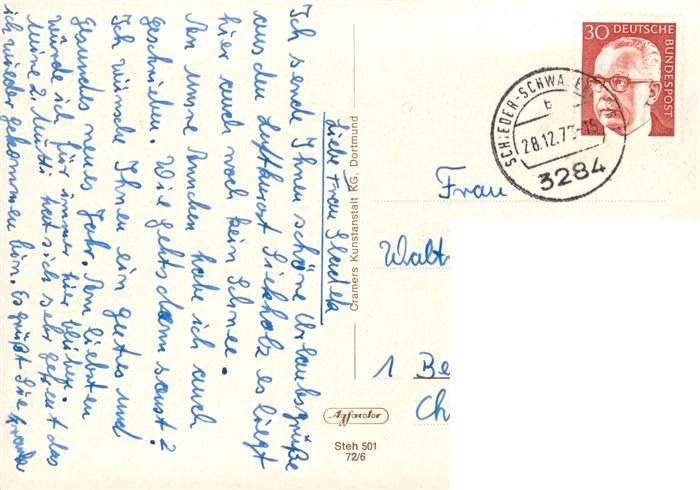 Liebe Frau
Ich sende Ihnen schöne Urlaubsgrüße
aus den Luftkurort Siekholz es liegt
hier auch noch kein Schnee.
An unsre Annchen habe ich auch
geschrieben. Wie gehts dann sonst?
Ich wünsche Ihnen ein gutes und
gesundes neues Jahr. Am liebsten
würde ich für immer hier bleiben.
Meine 2. Mutti hat sich sehr gefreut das
ich wieder gekommen bin. Es grüßt Sie
Cramers Kunstanstalt KG, Dortmund
Agfacolor
Steh 501
72/6
30 DEUTSCHE
BUNDESPOST
SCHIEDER-SCHWA
b
28.12.7 -15
3284
Frau
Walt
1 Be
Ch